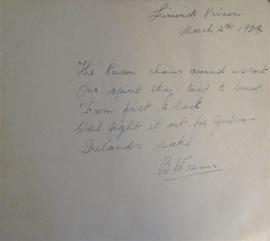 Limerick Prison
March 4th 1923
The Prison chains around us cart
Our spirit they tried to break
From first to last
We'll fight it out for
Irelands sake
B